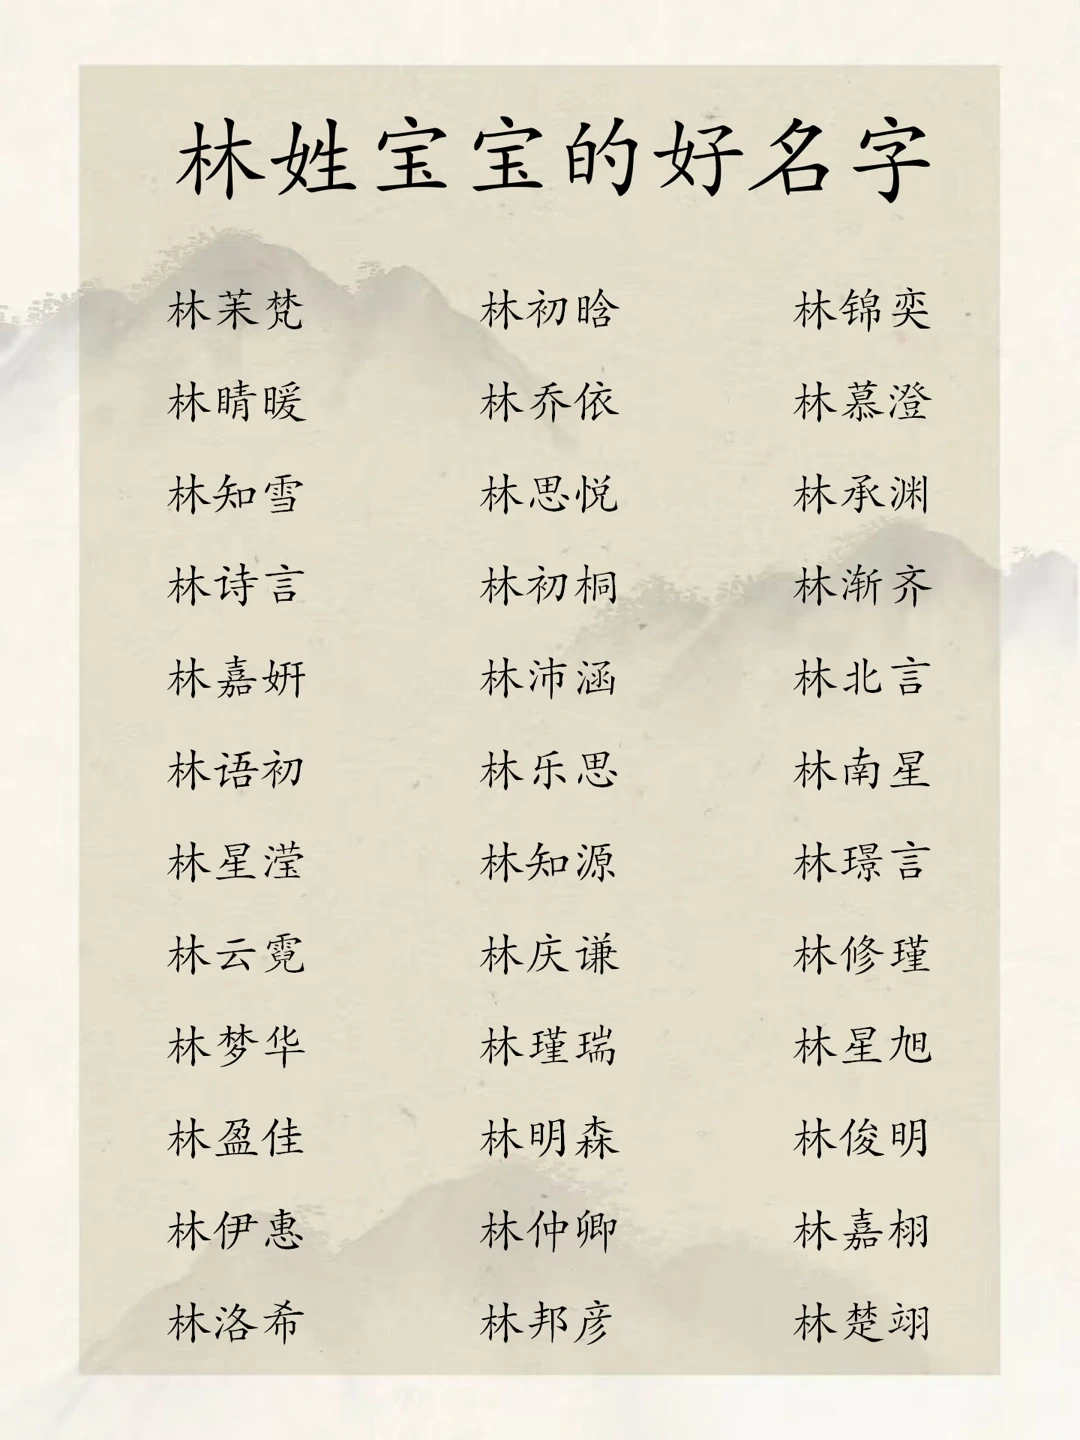 林姓宝宝的好名字
林茉梵 林初晗 林锦奕
林晴暖 林乔依 林慕澄
林知雪 林思悦 林承渊
林诗言 林初桐 林渐齐
林嘉妍 林沛涵 林北言
林语初 林乐思 林南星
林星滢 林知源 林璟言
林云霓 林庆谦 林修瑾
林梦华 林瑾瑞 林星旭
林盈佳 林明森 林俊明
林伊惠 林仲卿 林嘉栩
林洛希 林邦彦 林楚翊